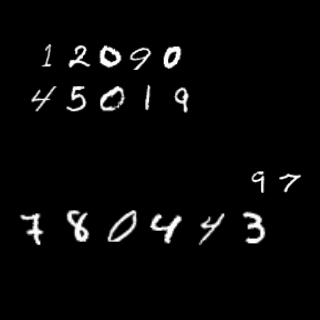 12090
45019
97
780443